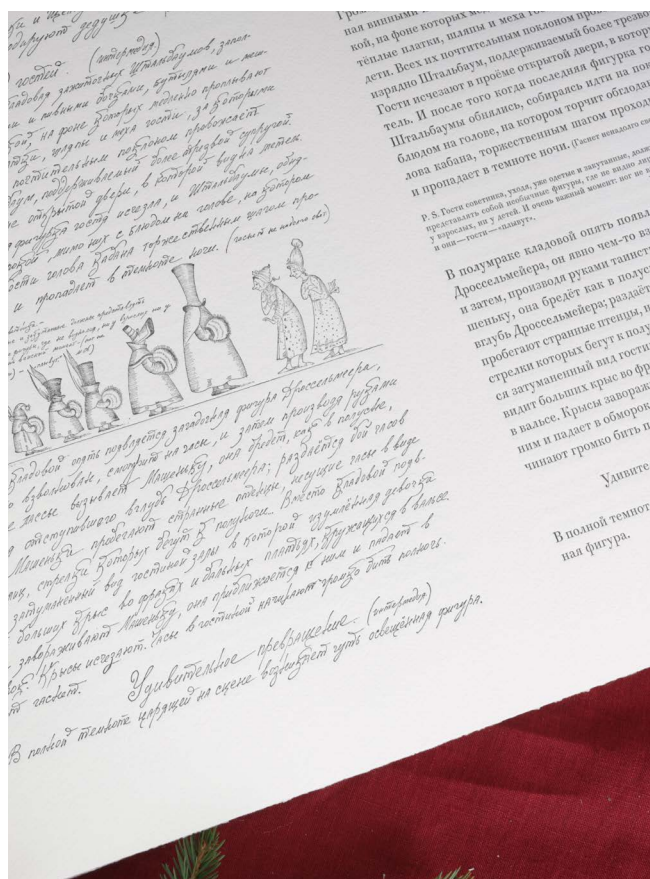 дарують дедушк
гостей. (интермедия)
Кладовая зажиточных Штальбаумов, запол-
и пивными бочками, бутылями и меш-
на фоне которых медленно проплывают
шляпы и меха гости, за которыми
почтительным поклоном провожает
поддерживаемый более трезвой супругой
открытой двери, в которой видна метель.
фигурка гостя исчезла, и Штальбаумы, обняв-
мимо них с блюдом на голове, на котором
голова кабана торжественным шагом про-
и пропадает в темноте ночи. (гаснет не надолго свет)
Кладовой опять появляется загадочная фигура Дроссельмейера,
взволнован, смотрит на часы, и затем производя руками
пассы вызывает Машеньку, она бредёт, как в полусне,
отступившего вглубь Дроссельмейера; раздаётся бой часов
Машеньки пробегают странные птенцы, несущие часы в виде
стрелки которых бегут к полуночи. Вместо кладовой появ-
затуманенный вид гостиной залы в которой изумлённая девочка
больших крыс во фраках и бальных платьях, кружащихся в вальсе.
завораживают Машеньку, она приближается к ним и падает в
Крысы исчезают. Часы в гостиной начинают громко бить полночь.
гаснет.
Удивительное превращение. (интермедия)
В полной темноте царящей на сцене возникает чуть освещённая фигура.
ная винными
кой, на фоне которых мед
тёплые платки, шляпы и меха го
дети. Всех их почтительным поклоном прово
изрядно Штальбаум, поддерживаемый более трезво
Гости исчезают в проёме открытой двери, в котор
тель. И после того когда последняя фигурка го
Штальбаумы обнялись, собираясь идти на пок
блюдом на голове, на котором торчит обглода
лова кабана, торжественным шагом проход
и пропадает в темноте ночи. (Гаснет ненадолго све
P. S. Гости советника, уходя, уже одетые и закутанные, долж
представлять собой необычные фигуры, где не видно ли
у взрослых, ни у детей. И очень важный момент: ног не в
и они — гости — «плывут».
В полумраке кладовой опять появл
Дроссельмейера, он явно чем-то вз
и затем, производя руками таинст
шеньку, она бредёт как в полус
вглубь Дроссельмейера; раздаёт
пробегают странные птенцы, н
стрелки которых бегут к полу
ся затуманенный вид гости
видит больших крыс во фр
в вальсе. Крысы завораж
ним и падает в обморок
чинают громко бить п
Удивите
В полной темнот
ная фигура.